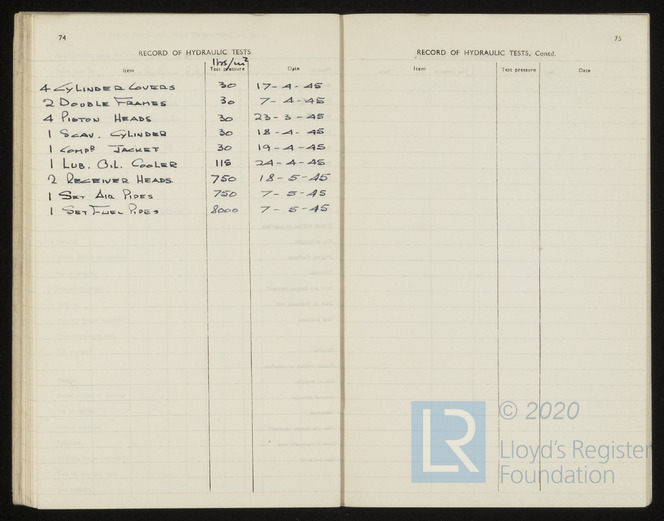 74
RECORD OF HYDRAULIC TESTS
lbs/in²
Item Test pressure Date
4 CYLINDER COVERS 30 17-4-45
2 DOUBLE FRAMES 30 7-4-45
4 PISTON HEADS 30 23-3-45
1 SCAV. CYLINDER 30 18-4-45
1 COMPR JACKET 30 19-4-45
1 LUB. OIL COOLER 115 24-4-45
2 RECEIVER HEADS 750 18-5-45
1 SET AIR PIPES 750 7-5-45
1 SET FUEL PIPES 8000 7-5-45
75
RECORD OF HYDRAULIC TESTS, Contd.
Item Test pressure Date
LR
© 2020
Lloyd's Register
Foundation